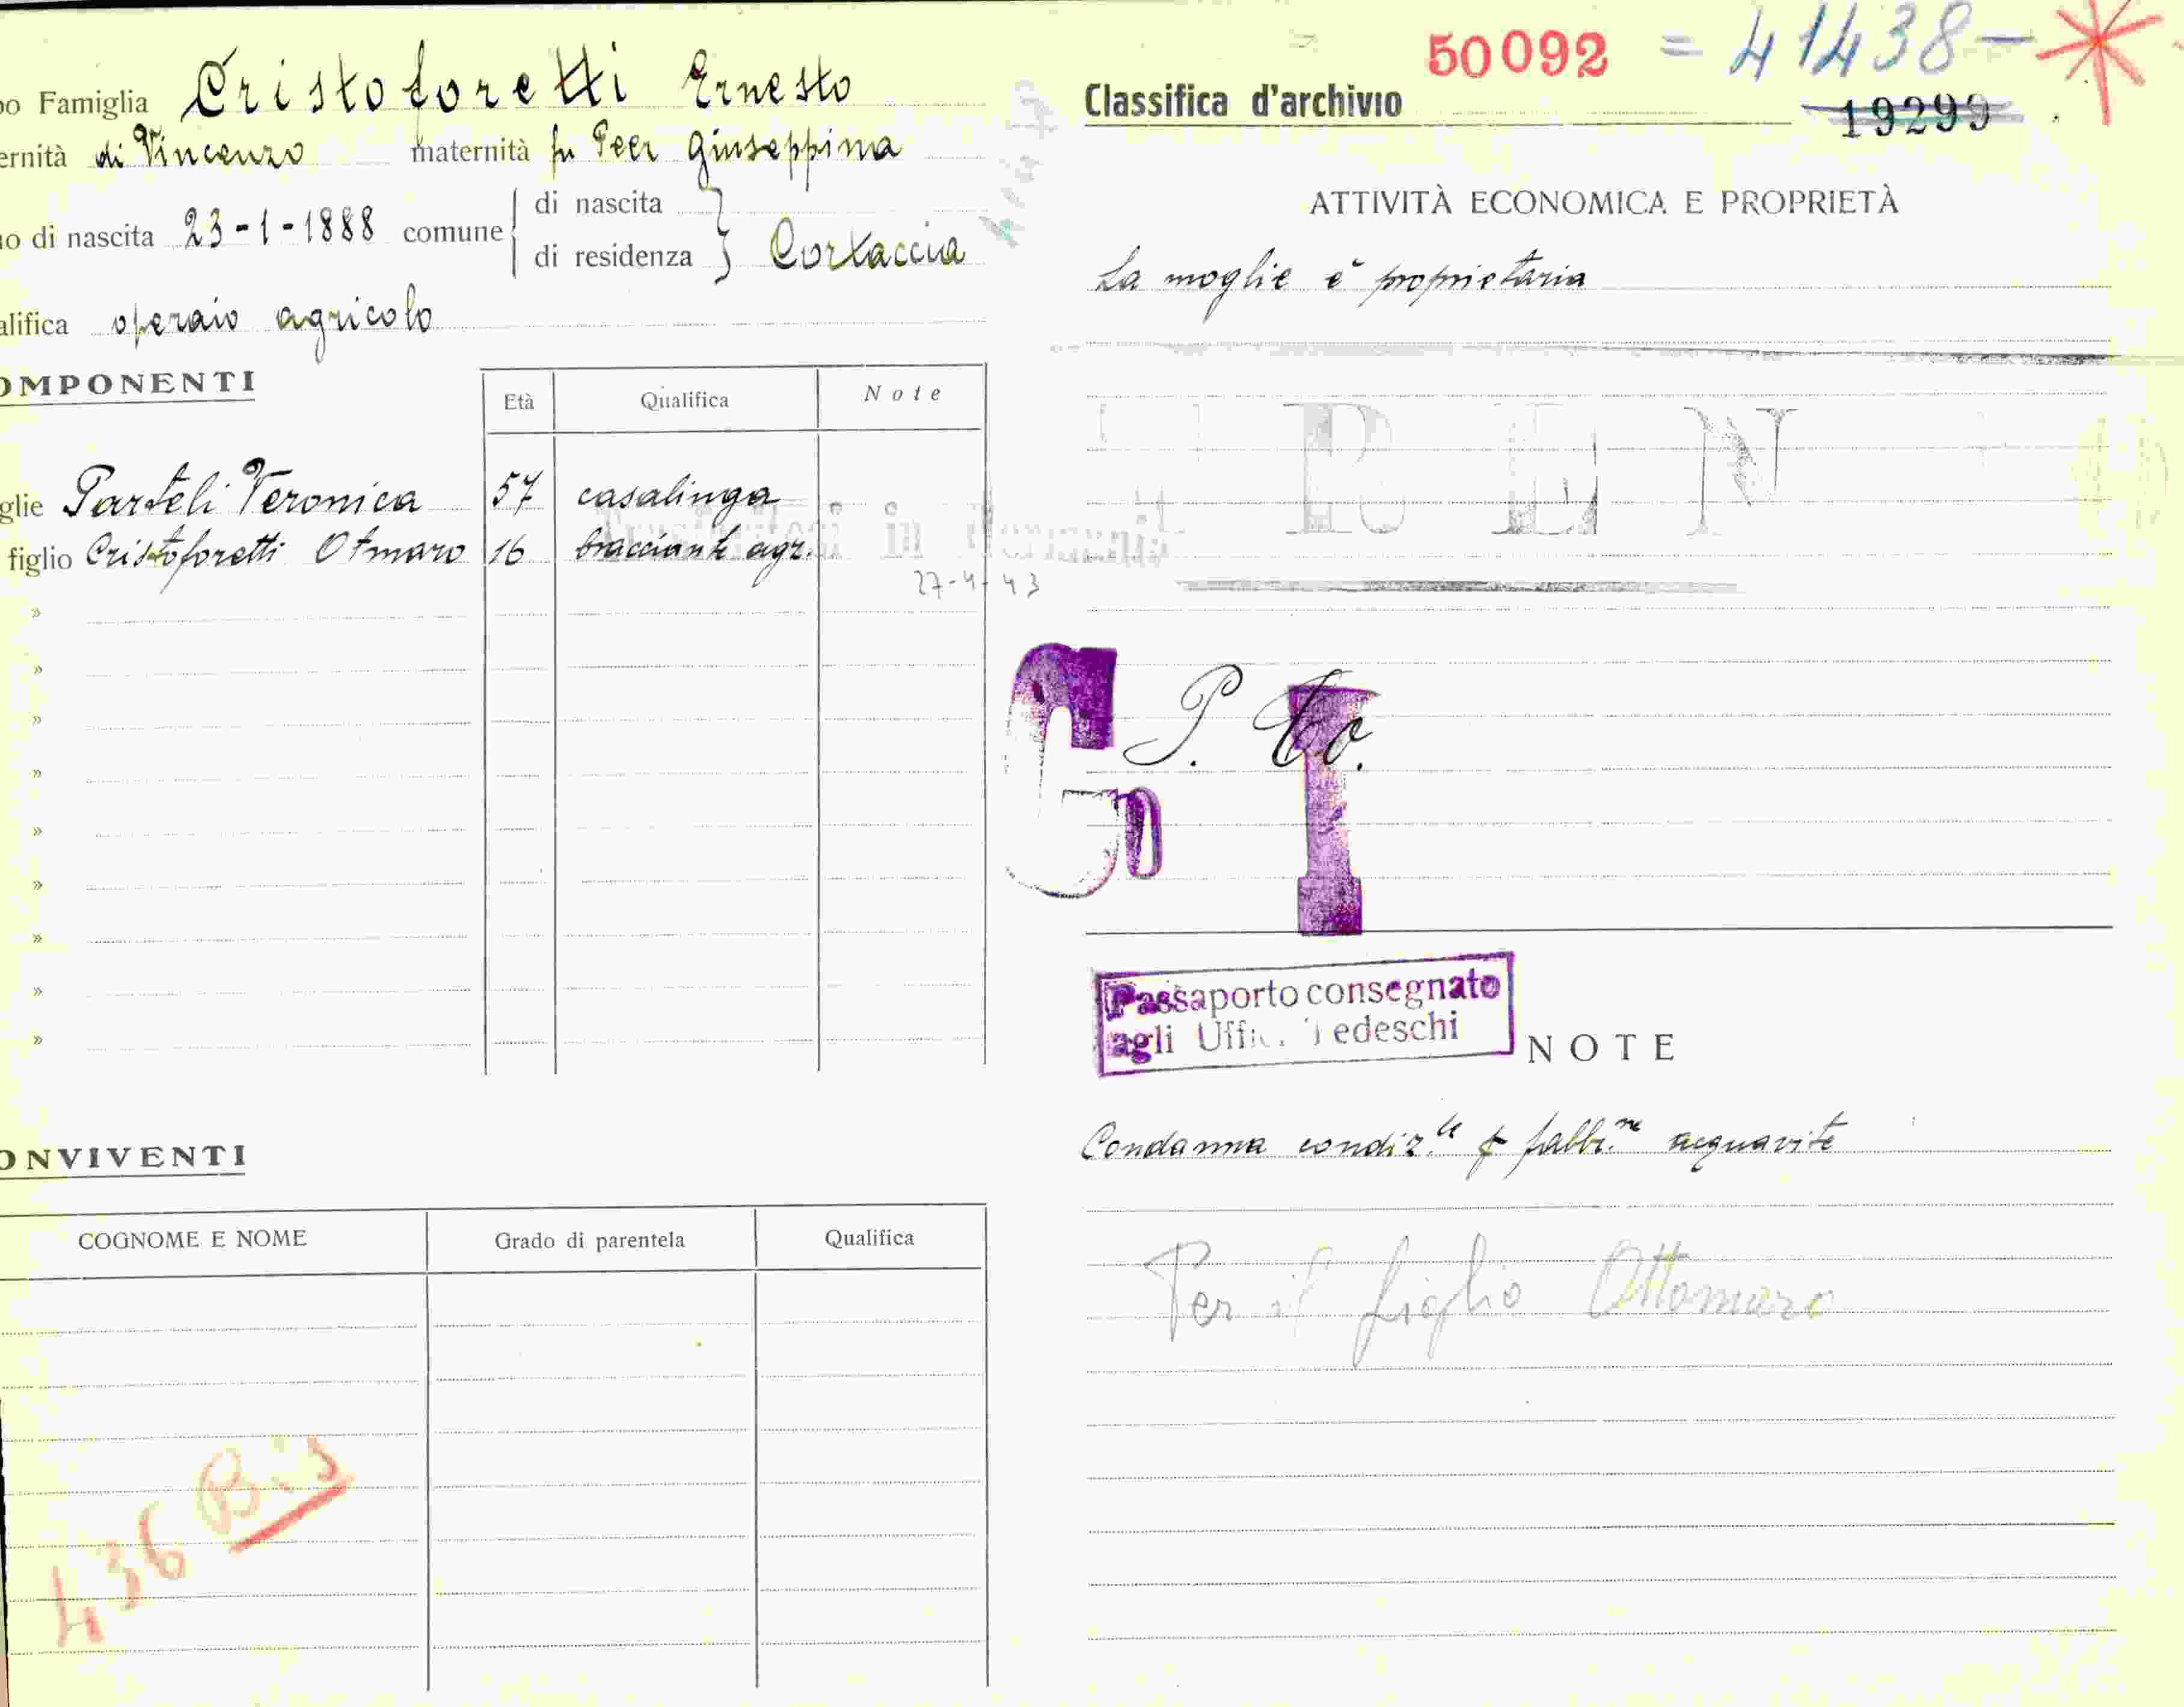 po Famiglia Cristoforetti Ernesto
ernità di Vincenzo maternità fu Peer Giuseppina
no di nascita 23-1-1888 comune di nascita
di residenza Cortaccia
alifica operaio agricolo
OMPONENTI
Età Qualifica Note
glie Parteli Veronica 57 casalinga
figlio Cristoforetti Otmaro 16 bracciante agr.
in Germania
27-4-43
»
»
»
»
»
»
»
»
»
ONVIVENTI
COGNOME E NOME Grado di parentela Qualifica
436 Bis
50092 = 41438 -
Classifica d'archivio 19299
ATTIVITÀ ECONOMICA E PROPRIETÀ
La moglie è proprietaria
P E N
G P. I
Passaporto consegnato
agli Uffic. Tedeschi
NOTE
Condanna condiz.le p fabbr.ne acquavite
Per il figlio Ottomaro